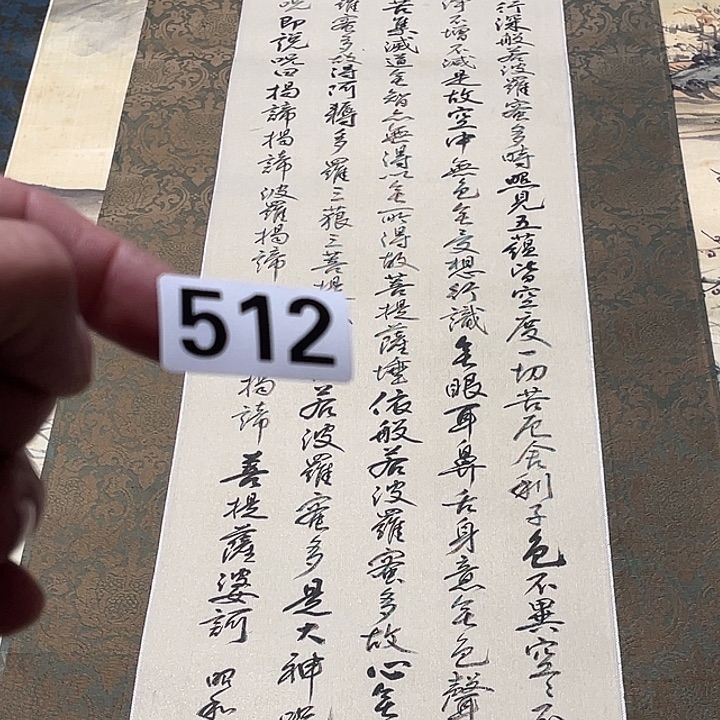 行深般若波羅蜜多時照見五蘊皆空度一切苦厄舍利子色不異空々不
不增不減是故空中無色無受想行識無眼耳鼻舌身意無色聲
苦集滅道無智亦無得以無所得故菩提薩埵依般若波羅蜜多故心無
羅蜜多故得阿耨多羅三藐三菩提 若波羅蜜多是大神
呪即説呪曰揭諦揭諦波羅揭諦 揭諦菩提薩婆訶 昭和
512